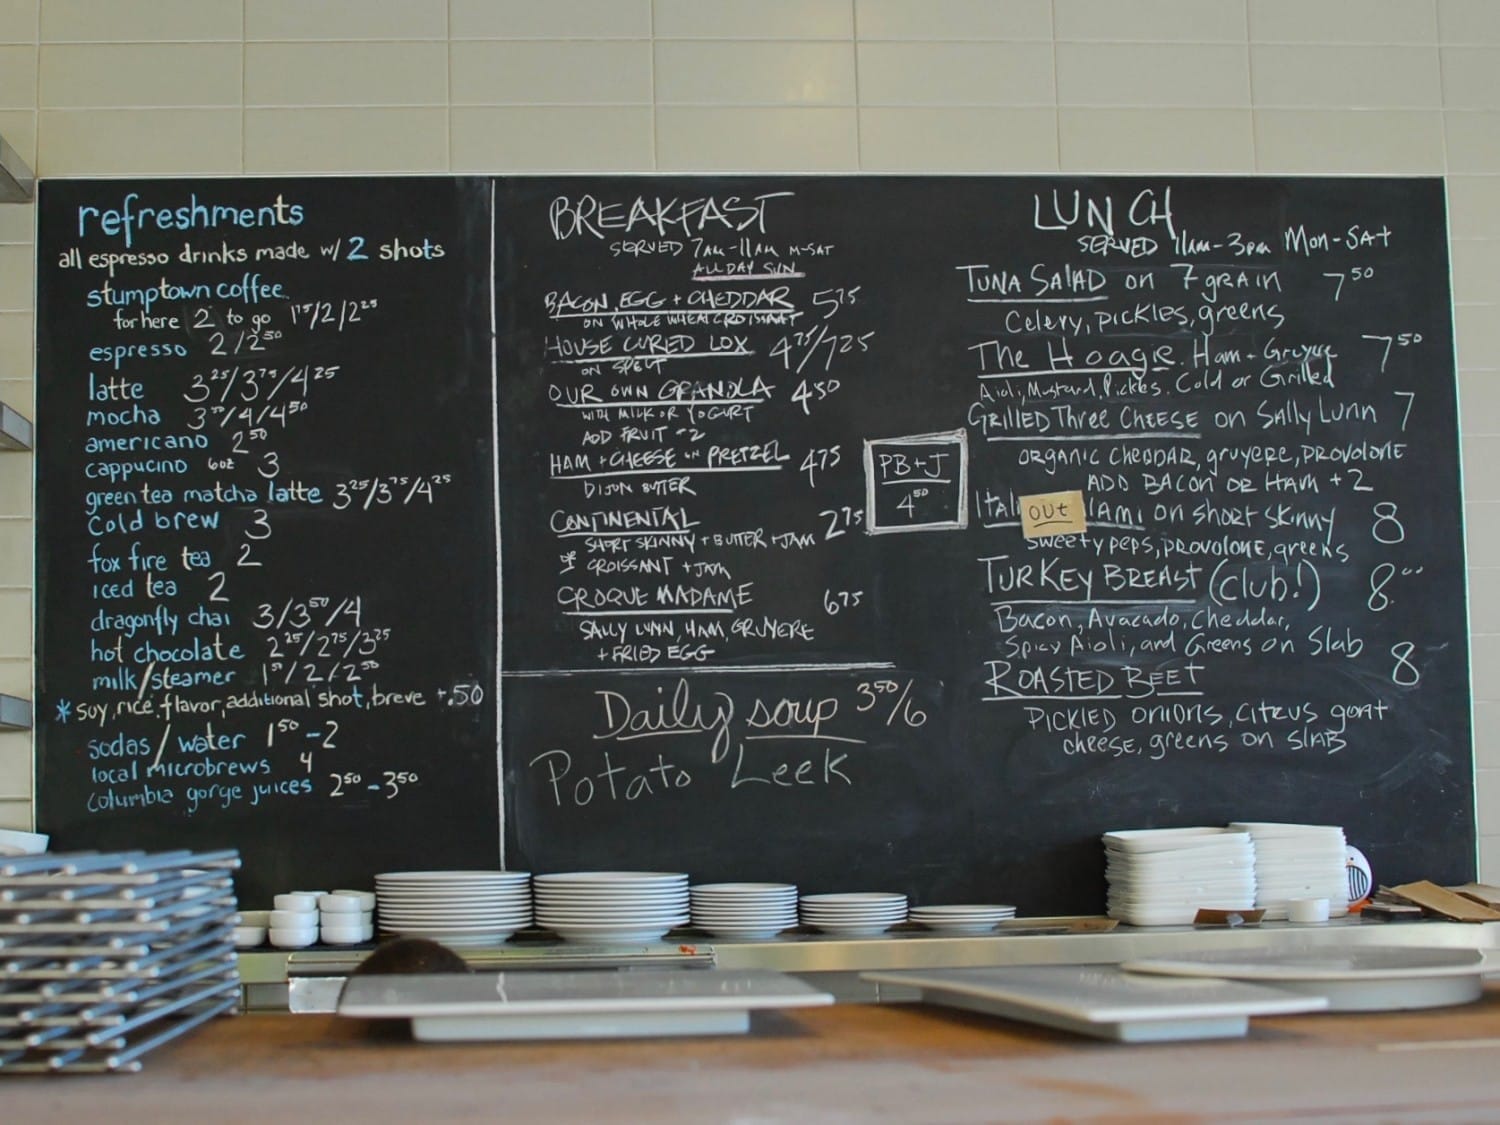 refreshments
all espresso drinks made w/ 2 shots
stumptown coffee
for here 2 to go 1 75/2/2 25
espresso 2/2 50
latte 3 25/3 75/4 25
mocha 3 50/4/4 50
americano 2 50
cappucino 6oz 3
green tea matcha latte 3 25/3 75/4 25
cold brew 3
fox fire tea 2
iced tea 2
dragonfly chai 3/3 50/4
hot chocolate 2 25/2 75/3 25
milk/steamer 1 50/2/2 50
* soy, rice, flavor, additional shot, breve +.50
sodas/water 1 50 - 2
local microbrews 4
columbia gorge juices 2 50 - 3 50
BREAKFAST
SERVED 7AM-11AM M-SAT
ALL DAY SUN
BACON, EGG + CHEDDAR 5 75
ON WHOLE WHEAT CROISSANT
HOUSE CURED LOX 4 75/7 25
ON SPELT
OUR OWN GRANOLA 4 50
WITH MILK OR YOGURT
ADD FRUIT 2
HAM + CHEESE ON PRETZEL 4 75
DIJON BUTTER
CONTINENTAL 2 75
SHORT SKINNY + BUTTER + JAM
OR CROISSANT + JAM
CROQUE MADAME 6 75
SALLY LUNN, HAM, GRUYERE
+ FRIED EGG
Daily soup 3 50/6
Potato Leek
PB+J
4 50
LUNCH
SERVED 11am-3pm Mon-SAT
TUNA SALAD on 7 grain 7 50
Celery, pickles, greens
The Hoagie. Ham + Gruyere 7 50
Aioli, Mustard, Pickles. Cold or Grilled
GRILLED Three CHEESE on Sally Lunn 7
ORGANIC CHEDDAR, gruyere, PROVOLONE
ADD BACON OR HAM + 2
Ital OUT lami on short skinny 8
sweety peps, PROVOLONE, greens
TURKEY BREAST (Club!) 8 00
Bacon, Avocado, Cheddar,
Spicy Aioli, and Greens on Slab
ROASTED BEET 8
PICKLED ONIONS, CITRUS goat
cheese, greens on SLAB